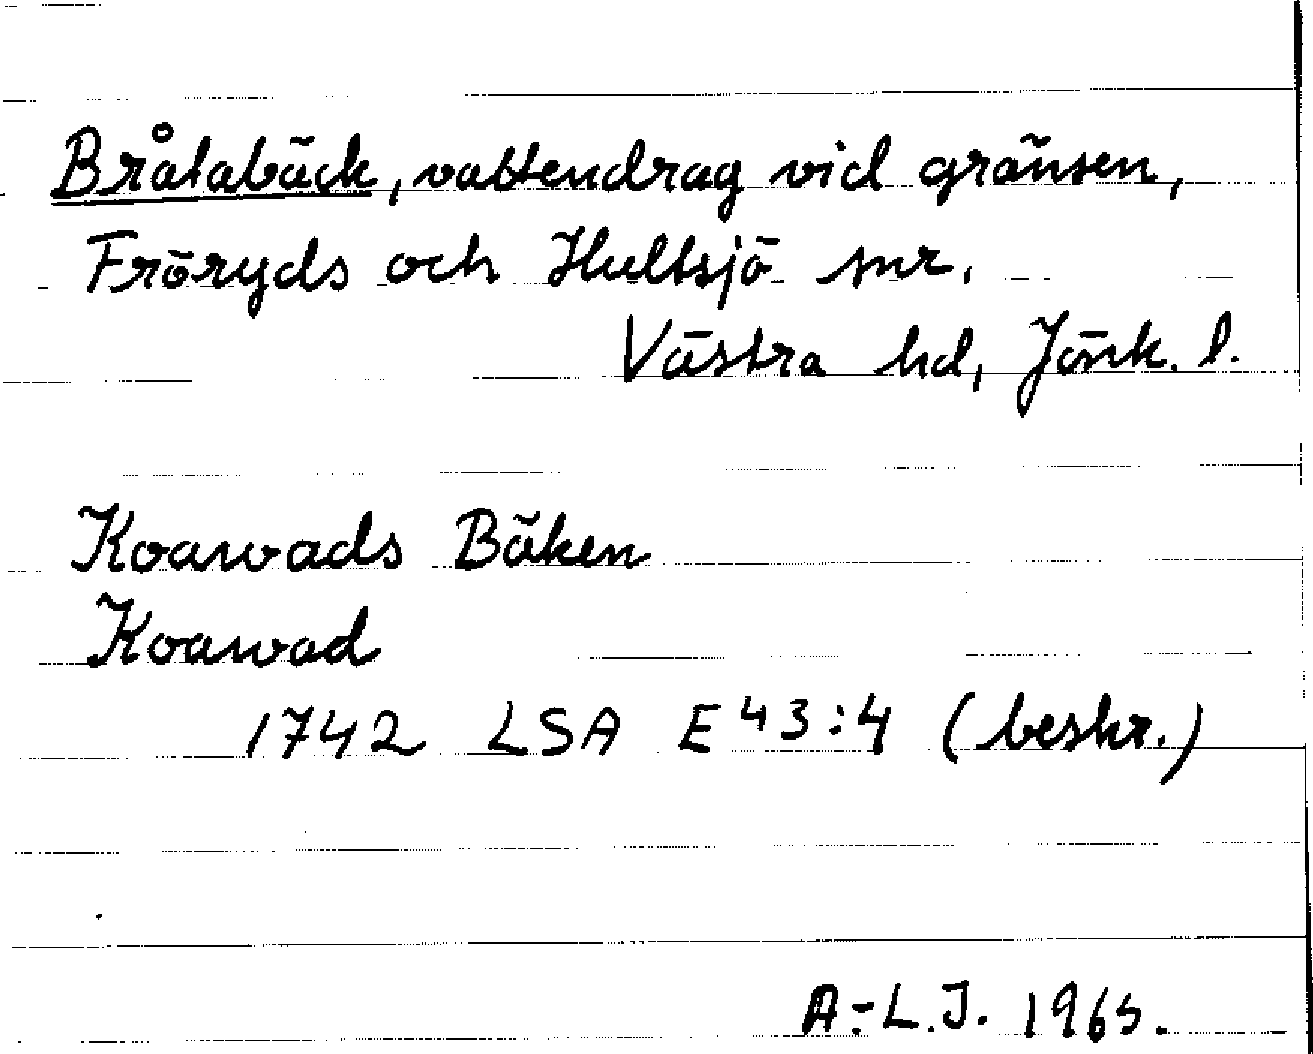 Brålabäck, vattendrag vid gränsen,
Fröryds och Hultsjö snr.
Västra hd, Jönk. l.
Koawads Bäken
Koawad
1742 LSA E 43:4 (beskr.)
A.-L.J. 1965.